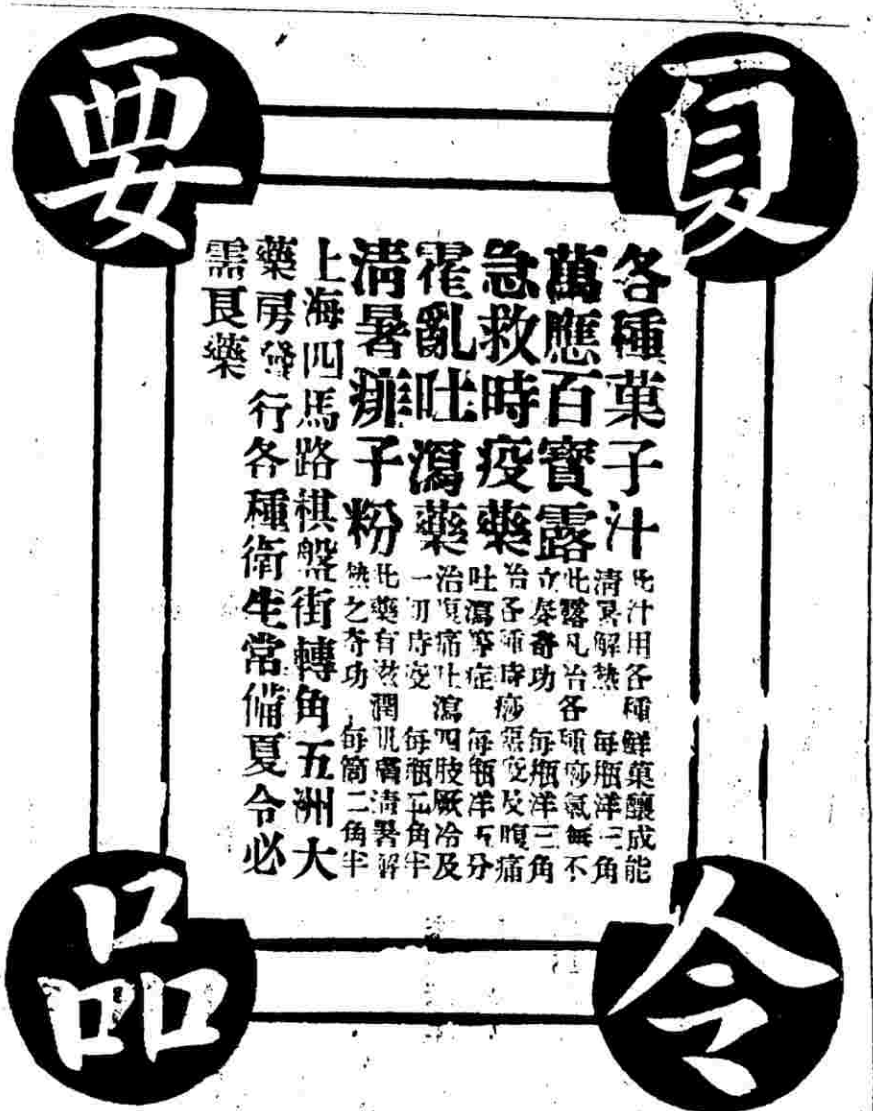 夏令要品
各種菓子汁
此汁用各種鮮菓釀成能
清暑解熱 每瓶洋三角
萬應百寶露
此露凡治各種痧氣無不
立奏奇功 每瓶洋三角
急救時疫藥
治各種時痧瘟疫及腹痛
吐瀉等症 每瓶洋五分
霍亂吐瀉藥
治腹痛吐瀉四肢厥冷及
一切時疫 每瓶二角半
清暑痱子粉
此藥有滋潤肌膚清暑解
熱之奇功 每筒二角半
上海四馬路棋盤街轉角五洲大
藥房發行各種衛生常備夏令必
需良藥